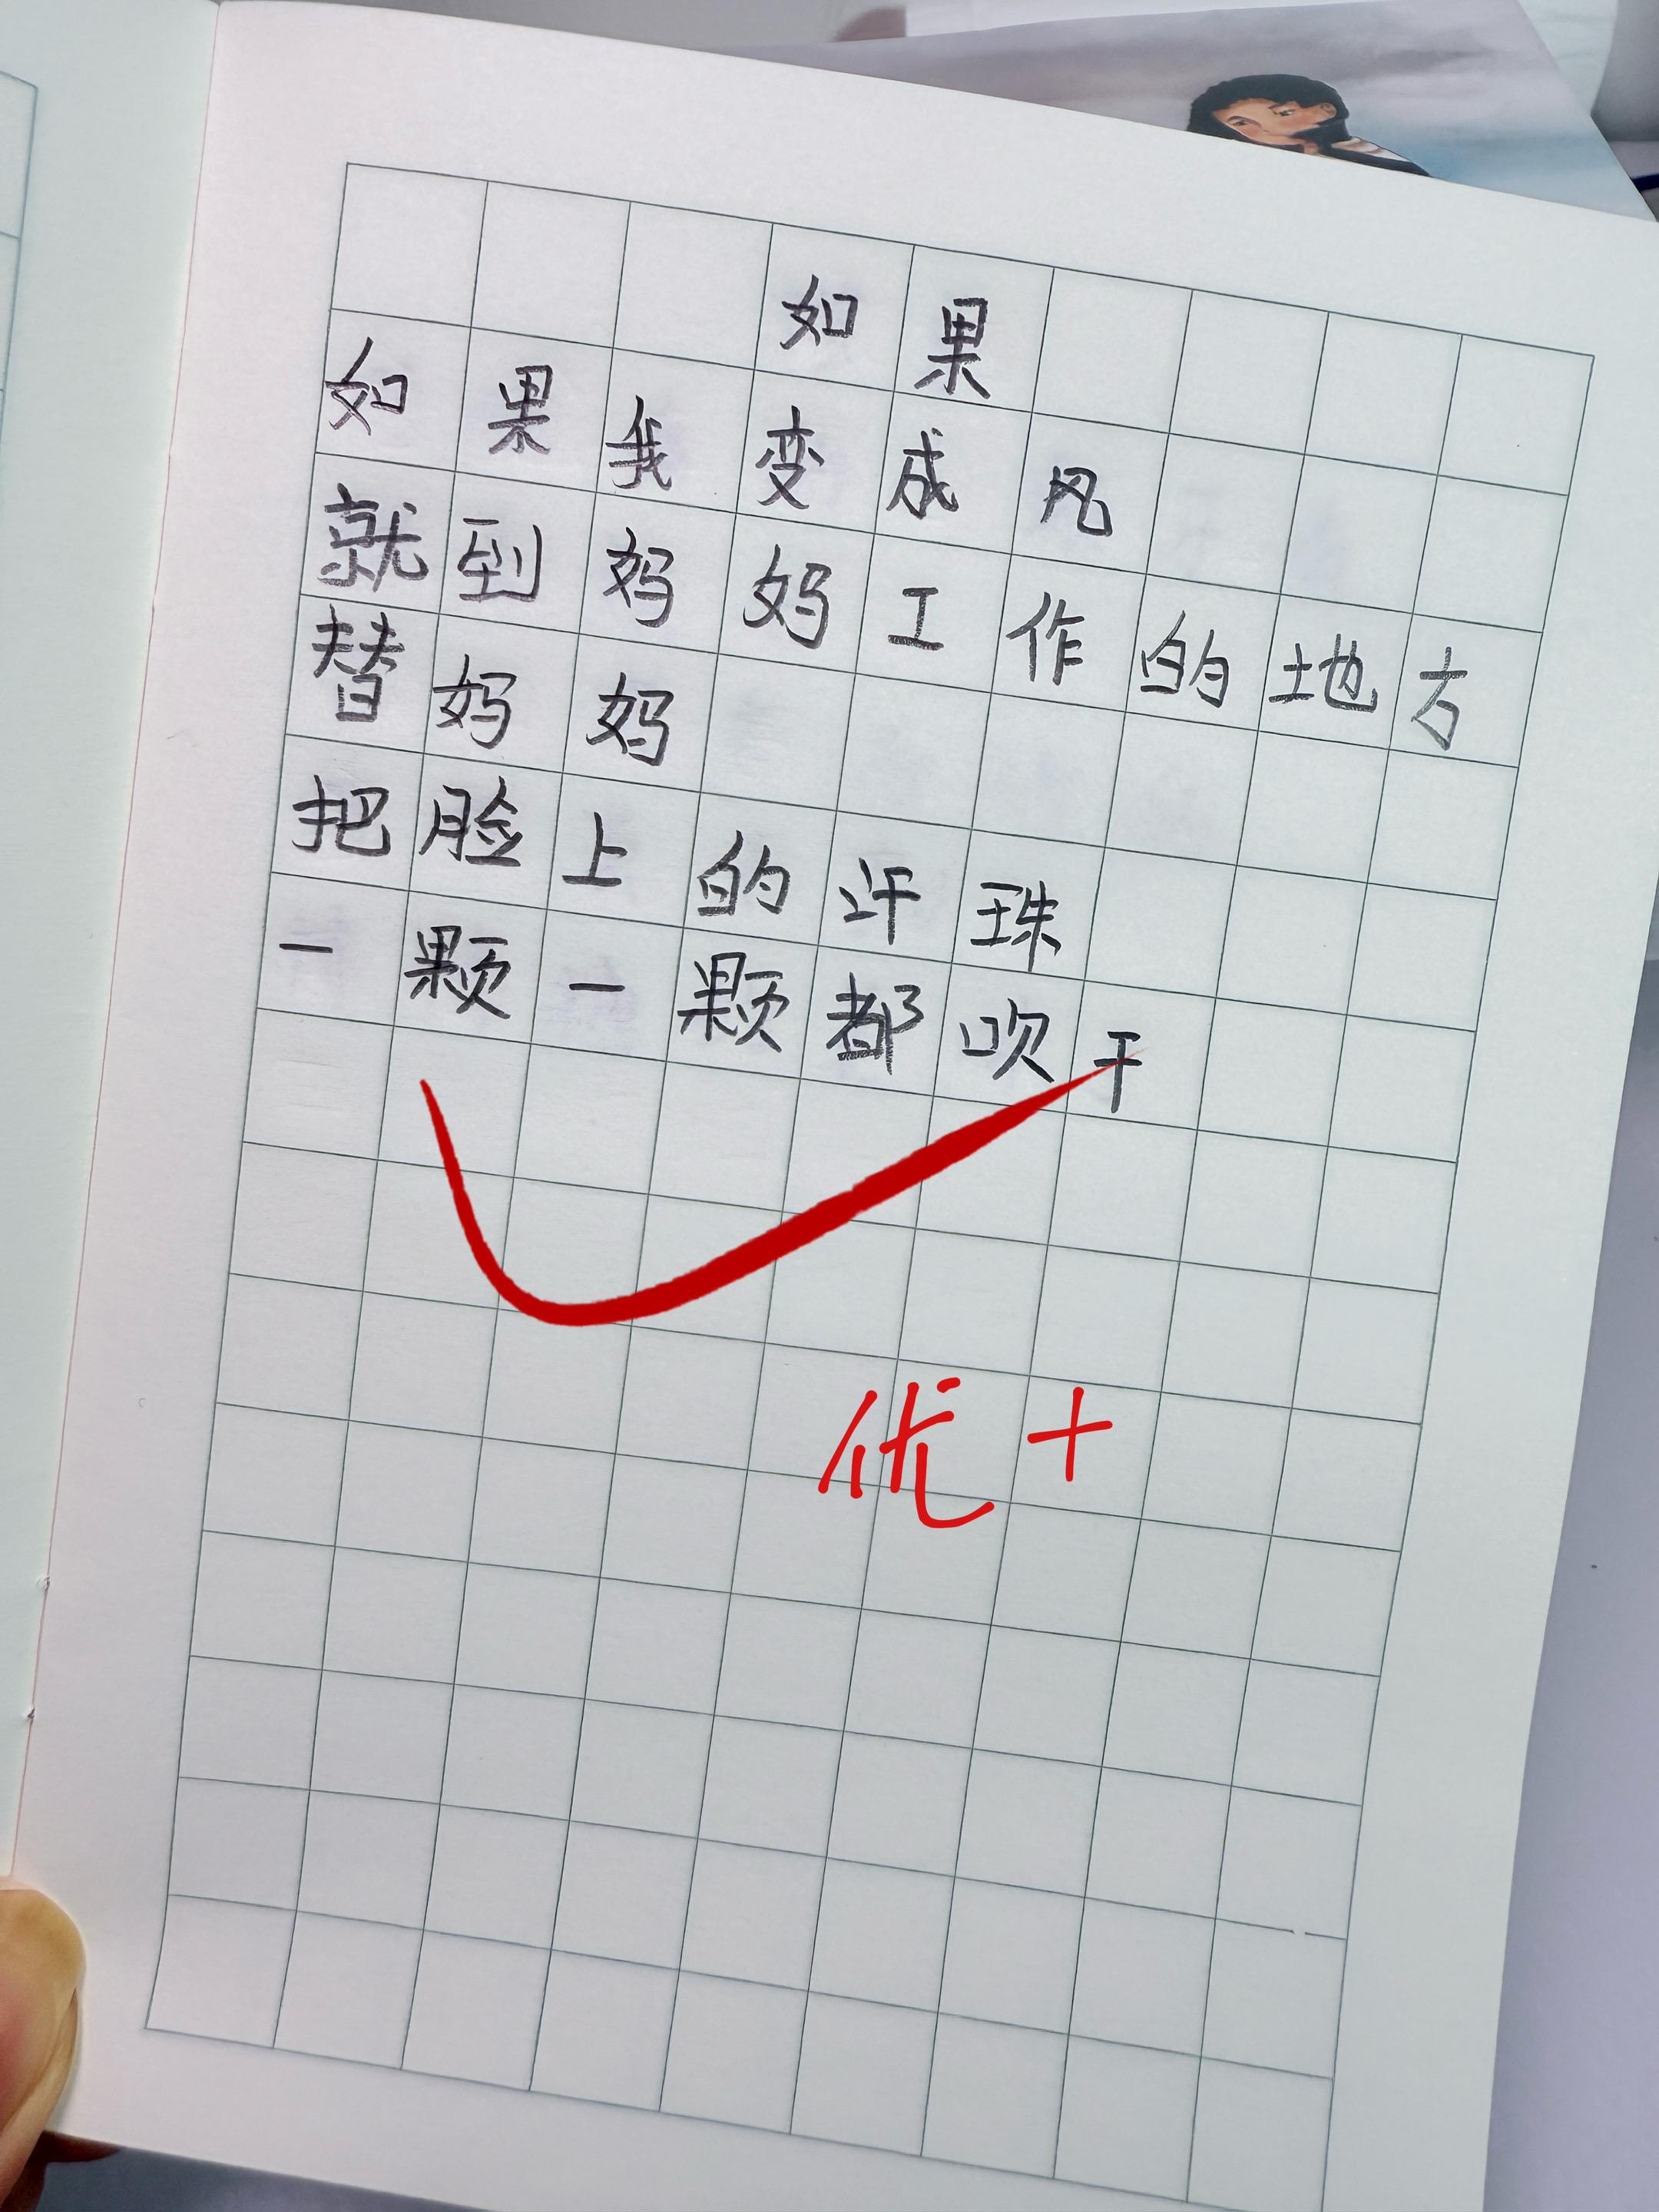 如果
如果我变成风
就到妈妈工作的地方
替妈妈
把脸上的汗珠
一颗一颗都吹干
优+